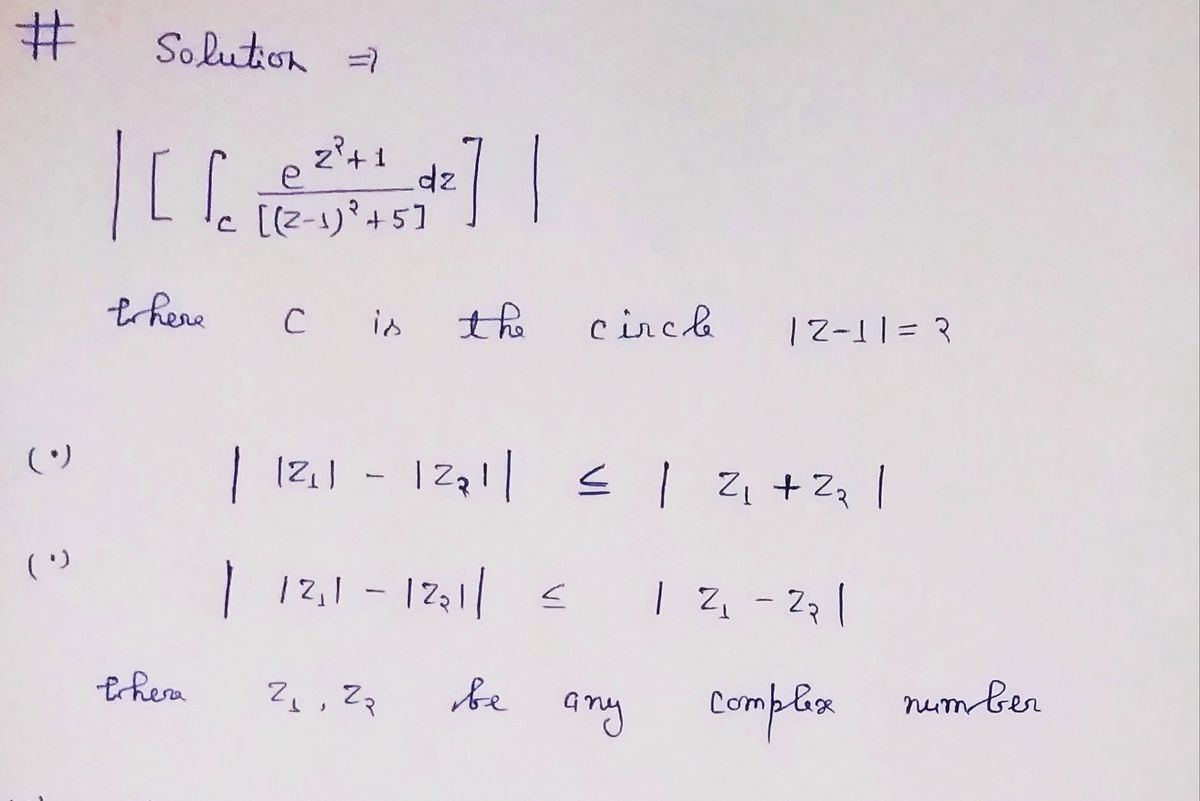 # Solution ⇒
| [ ∫_C e^{z²+1} / [(z-1)²+5] dz ] |
where C is the circle |z-1| = 2
(•) | |z₁| - |z₂| | ≤ | z₁ + z₂ |
(•) | |z₁| - |z₂| | ≤ | z₁ - z₂ |
where z₁, z₂ be any complex number